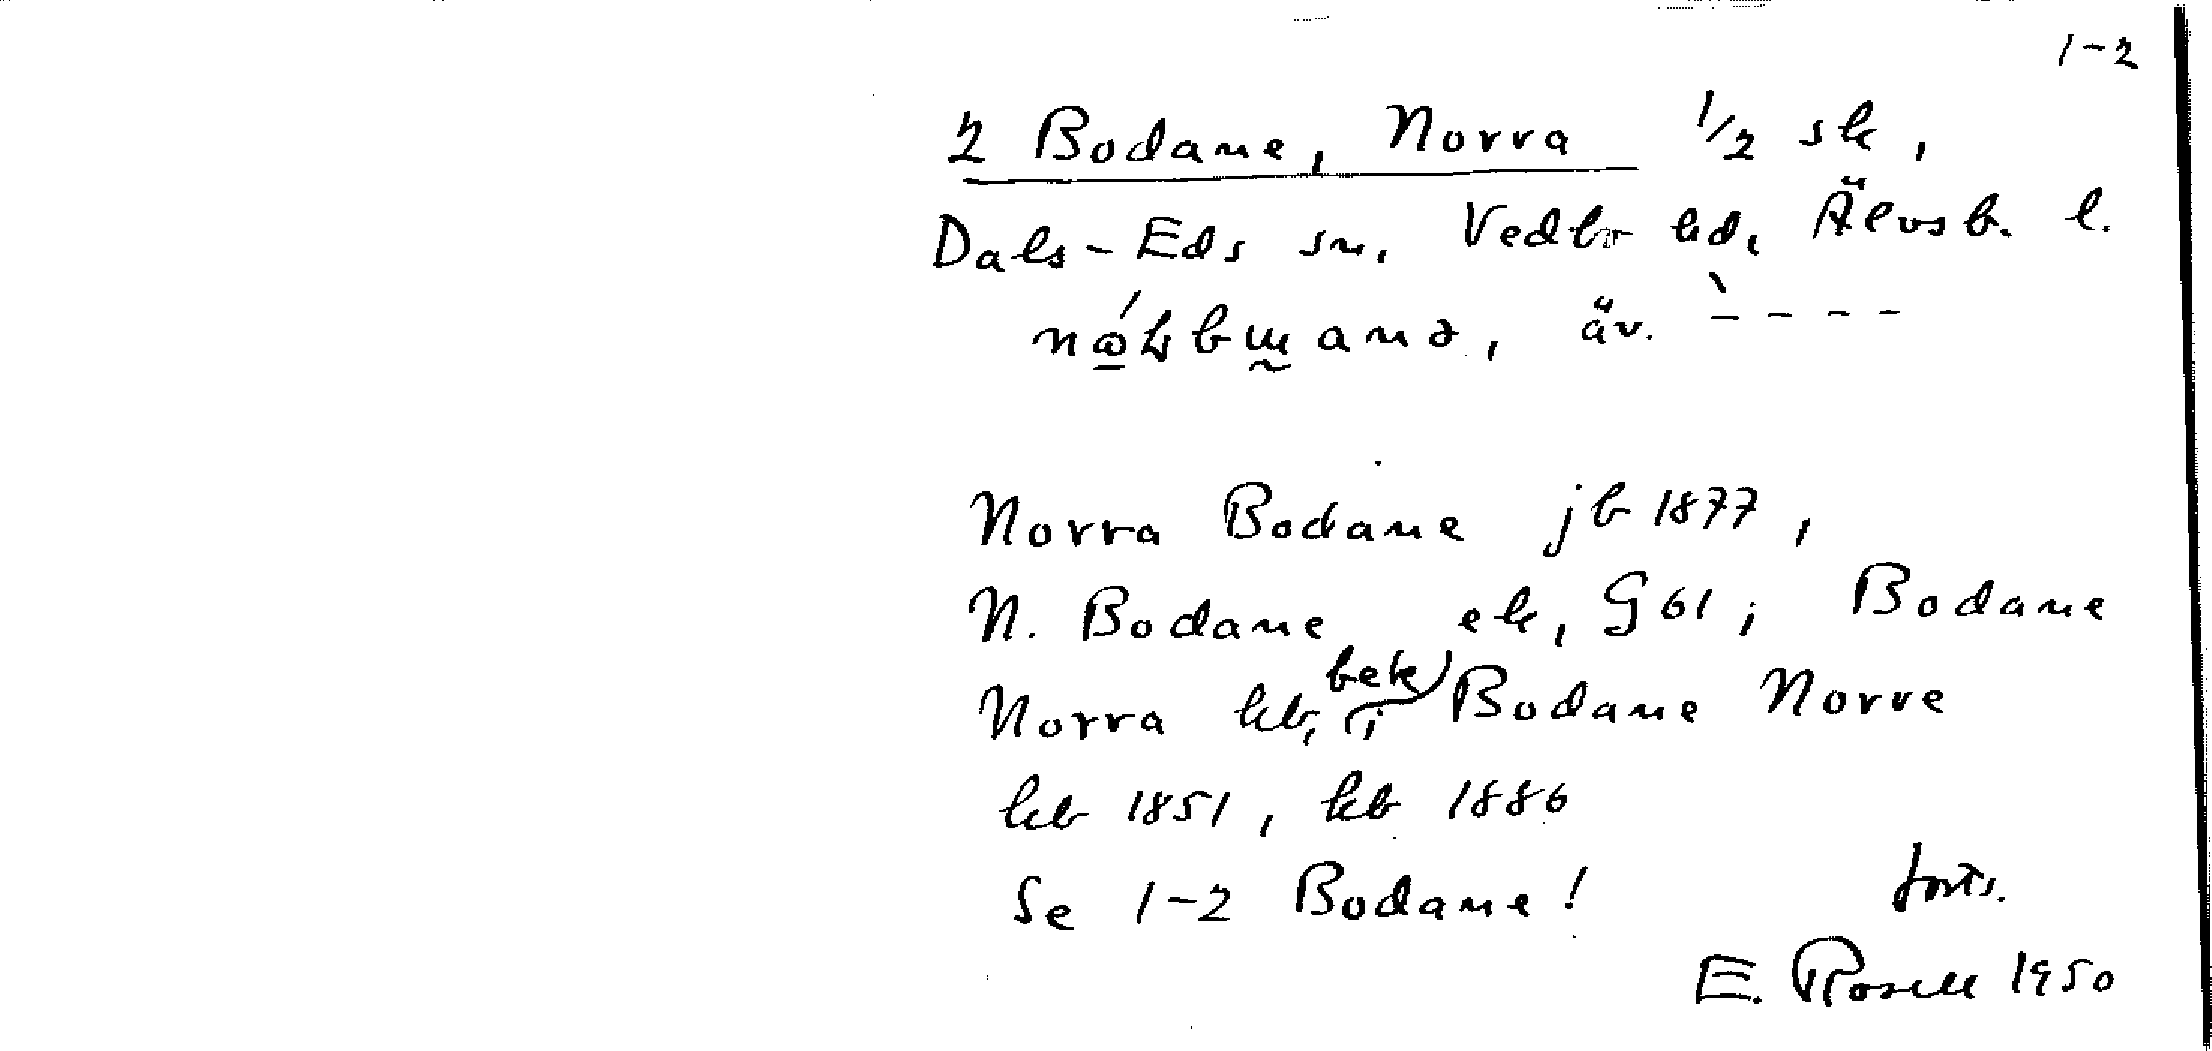 1-2
2 Bodane, Norra 1/2 sk,
Dals-Eds sn, Vedbo hd, Älvsb. l.
äv. ̀- - - -
Norra Bodane jb 1877,
N. Bodane ek, G61; Bodane
Norra hb, (bek) i Bodane Norre
kb 1851, kb 1886
Se 1-2 Bodane!
forts.
E. Rosell 1950